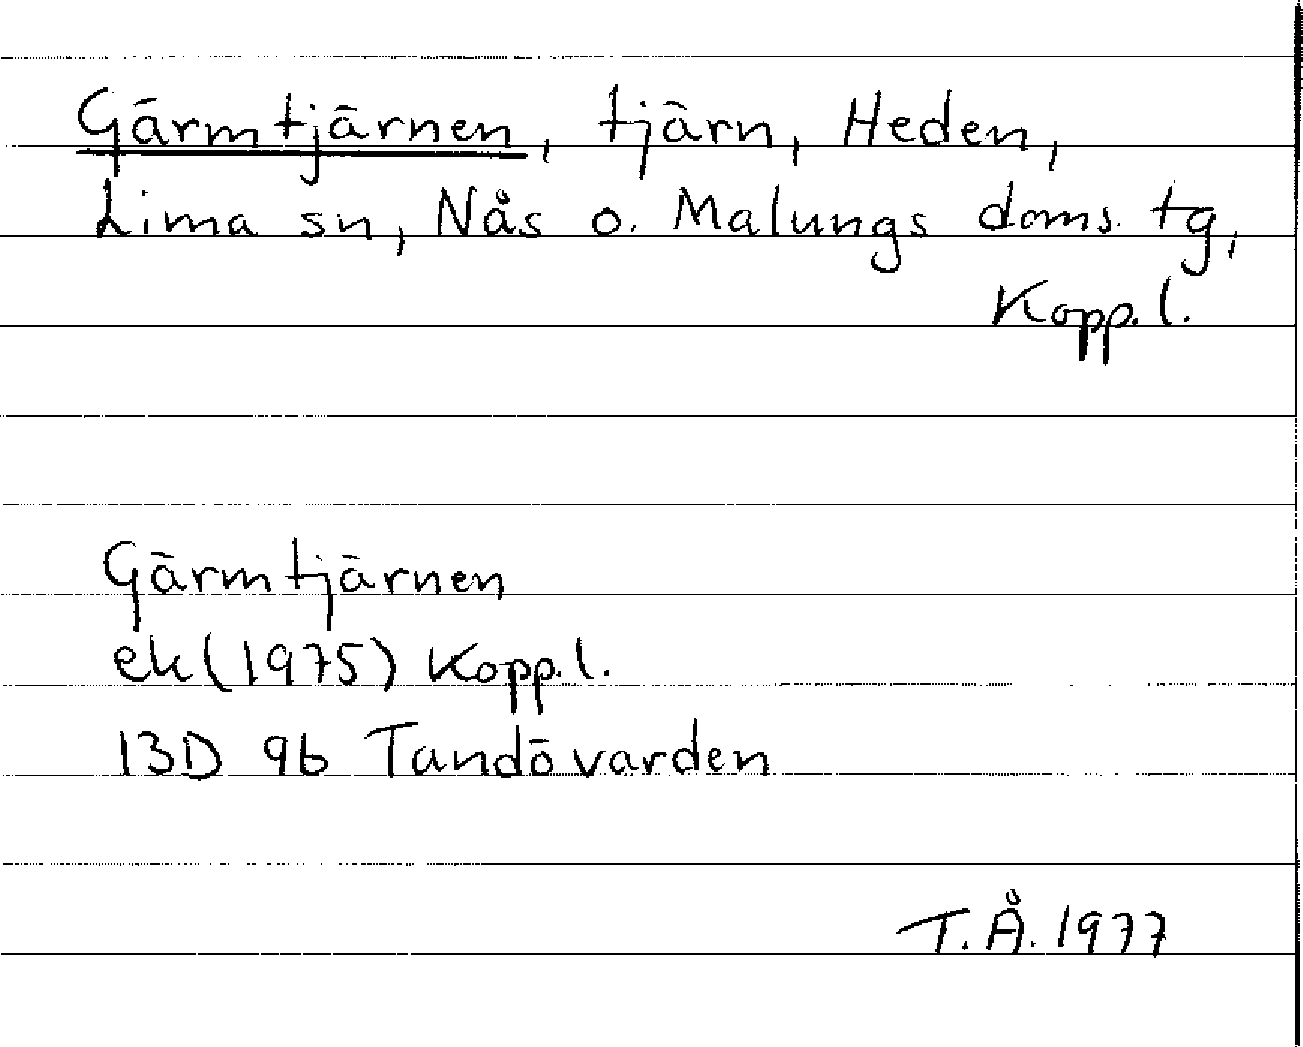 Gärmtjärnen, tjärn, Heden,
Lima sn, Nås o. Malungs doms. tg,
Kopp. l.
Gärmtjärnen
ek (1975) Kopp. l.
13D 9b Tandövarden
T.Å. 1977